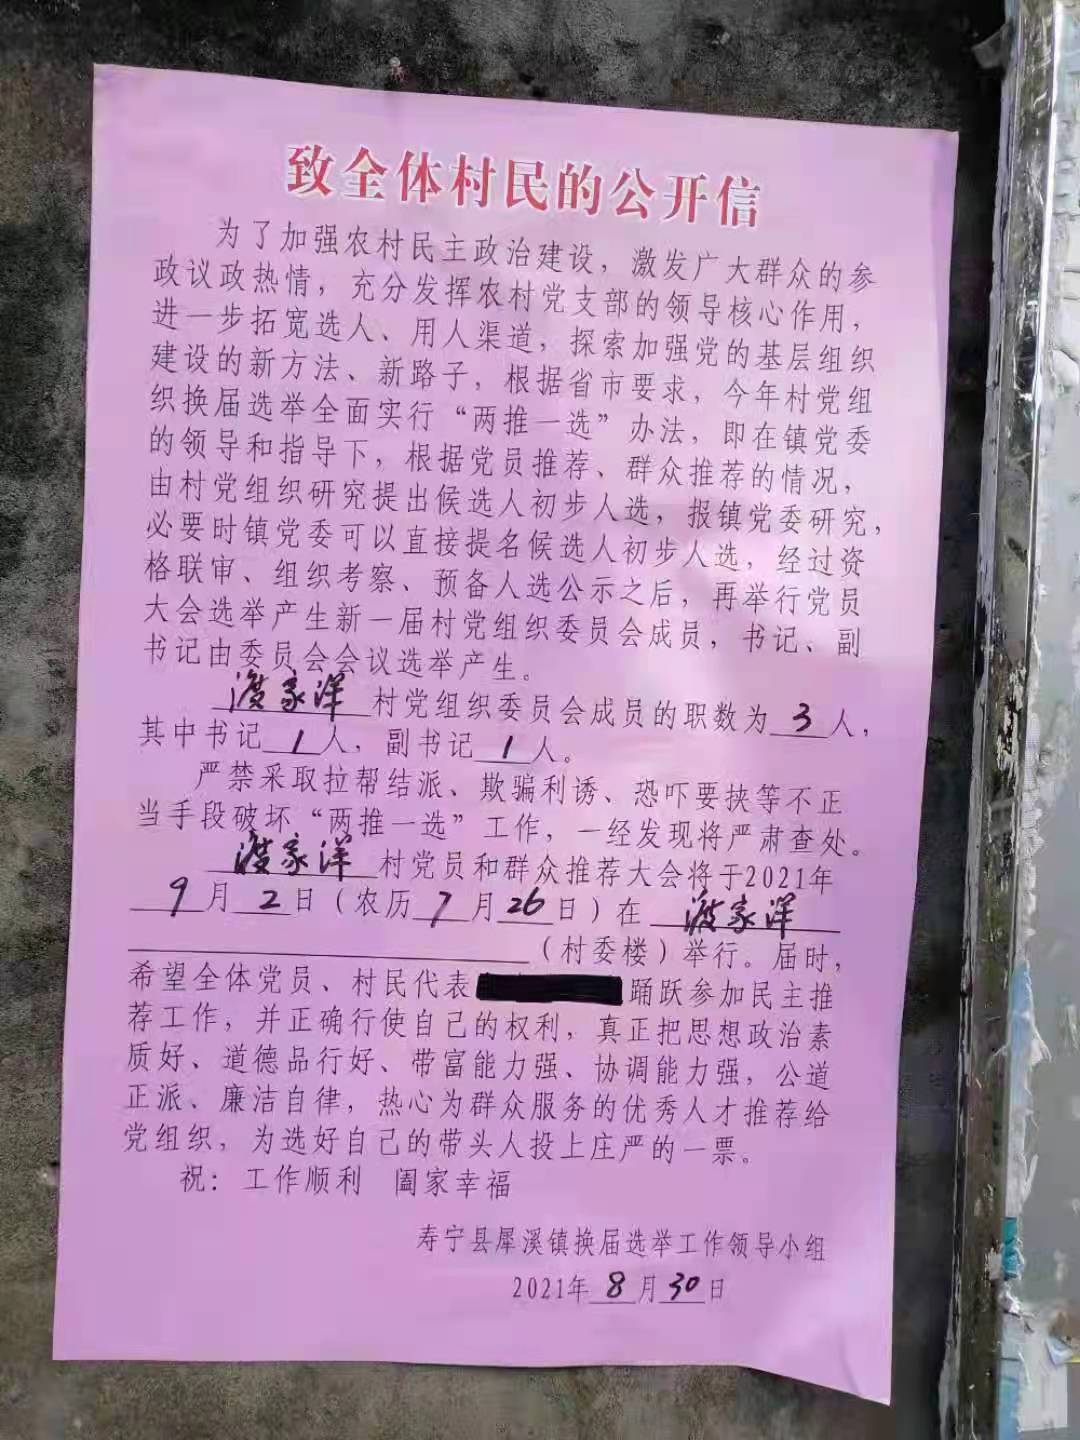 致全体村民的公开信
为了加强农村民主政治建设，激发广大群众的参
政议政热情，充分发挥农村党支部的领导核心作用，
进一步拓宽选人、用人渠道，探索加强党的基层组织
建设的新方法、新路子，根据省市要求，今年村党组
织换届选举全面实行“两推一选”办法，即在镇党委
的领导和指导下，根据党员推荐、群众推荐的情况，
由村党组织研究提出候选人初步人选，报镇党委研究，
必要时镇党委可以直接提名候选人初步人选，经过资
格联审、组织考察、预备人选公示之后，再举行党员
大会选举产生新一届村党组织委员会成员，书记、副
书记由委员会会议选举产生。
渡家洋村党组织委员会成员的职数为3人，
其中书记1人，副书记1人。
严禁采取拉帮结派、欺骗利诱、恐吓要挟等不正
当手段破坏“两推一选”工作，一经发现将严肃查处。
渡家洋村党员和群众推荐大会将于2021年
9月2日（农历7月26日）在渡家洋
（村委楼）举行。届时，
希望全体党员、村民代表踊跃参加民主推
荐工作，并正确行使自己的权利，真正把思想政治素
质好、道德品行好、带富能力强、协调能力强，公道
正派、廉洁自律，热心为群众服务的优秀人才推荐给
党组织，为选好自己的带头人投上庄严的一票。
祝：工作顺利 阖家幸福
寿宁县犀溪镇换届选举工作领导小组
2021年8月30日